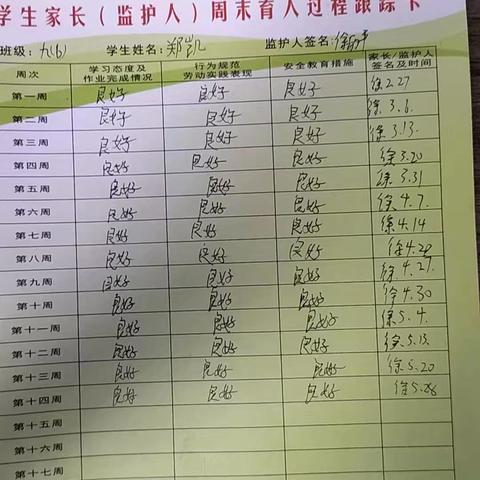 学生家长（监护人）周末育人过程跟踪卡
班级：九(6) 学生姓名：郑凯 监护人签名：徐
周次 学习态度及作业完成情况 行为规范劳动实践表现 安全教育措施 家长/监护人签名及时间
第一周 良好 良好 良好 徐 2.27
第二周 良好 良好 良好 徐 3.6.
第三周 良好 良好 良好 徐 3.13.
第四周 良好 良好 良好 徐 3.20
第五周 良好 良好 良好 徐 3.31
第六周 良好 良好 良好 徐 4.7.
第七周 良好 良好 良好 徐 4.14
第八周 良好 良好 良好 徐 4.20
第九周 良好 良好 良好 徐 4.27.
第十周 良好 良好 良好 徐 4.30
第十一周 良好 良好 良好 徐 5.4.
第十二周 良好 良好 良好 徐 5.13.
第十三周 良好 良好 良好 徐 5.20
第十四周 良好 良好 良好 徐 5.28
第十五周
第十六周
第十七周